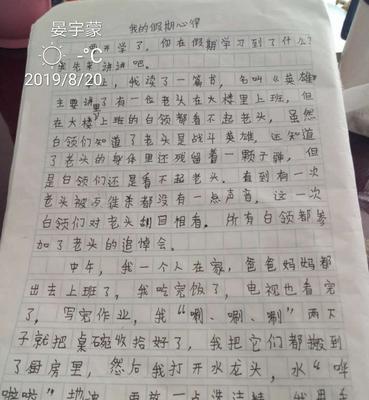 晏宇蒙
2019/8/20
我的假期心得
要开学了，你在假期学习到了什么？
先来讲讲吧。
上，我读了一篇书，名叫《英雄
主要讲了有一位老头在大楼里上班，但
在大楼里上班的白领都看不起老头，虽然
白领们知道了老头是战斗英雄，还知道
了老头的身体里还残留着一颗子弹，但
是白领们还是看不起老头。直到有一次
老头被歹徒杀都没有一点声音，这一次
白领们对老头刮目相看。所有白领都参
加了老头的追悼会。
中午，我一个人在家，爸爸妈妈都
出去上班了，我吃完饭了，电视也看完
了，写完作业，我“唰、唰、唰”两下
子就把桌碗收拾好了，我把它们都搬到
了厨房里，然后我打开水龙头，水“哗
啦啦”
再放一点洗洁精